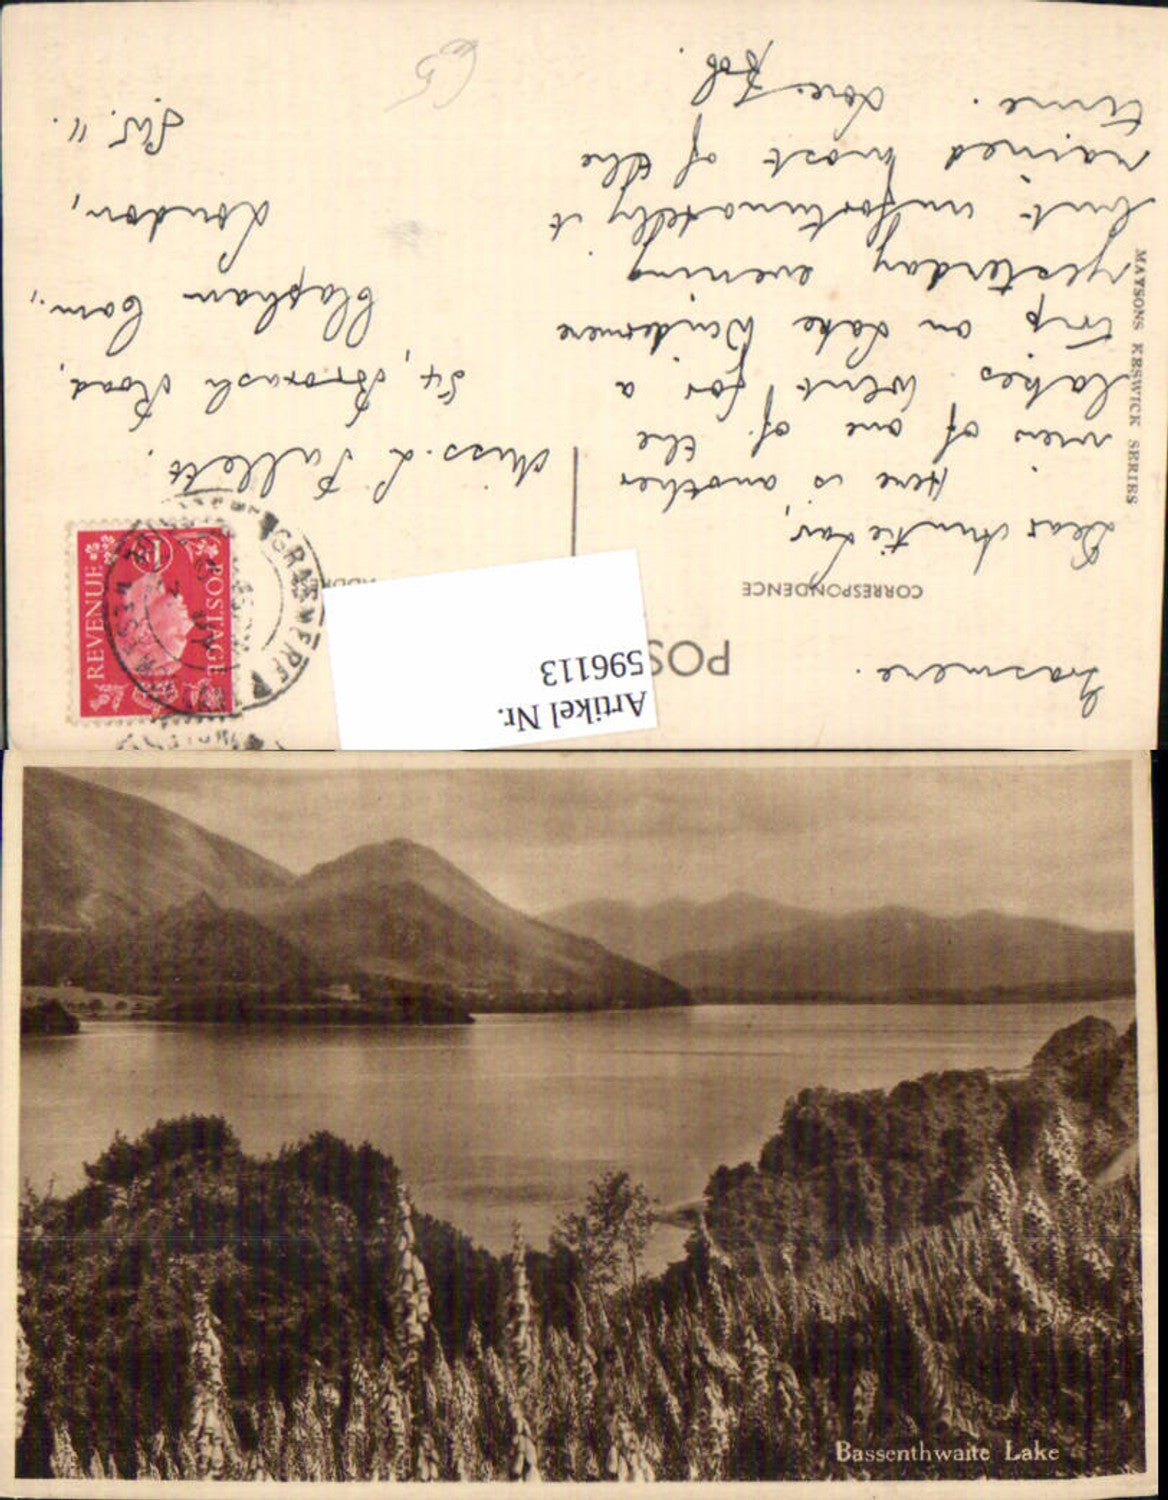 Grasmere.
CORRESPONDENCE
Dear Auntie
Here is another
view of one of the
lakes. Went for a
trip on Lake Windermere
yesterday evening
but unfortunatelly it
rained most of the
time.
Love
POS
ADD
Miss. L
54, Road,
Clapham Com.,
London,
S.W. 11.
MAYSONS KESWICK SERIES
Artikel Nr.
596113
POSTAGE
REVENUE
1D
GRASMERE
WESTM
Bassenthwaite Lake